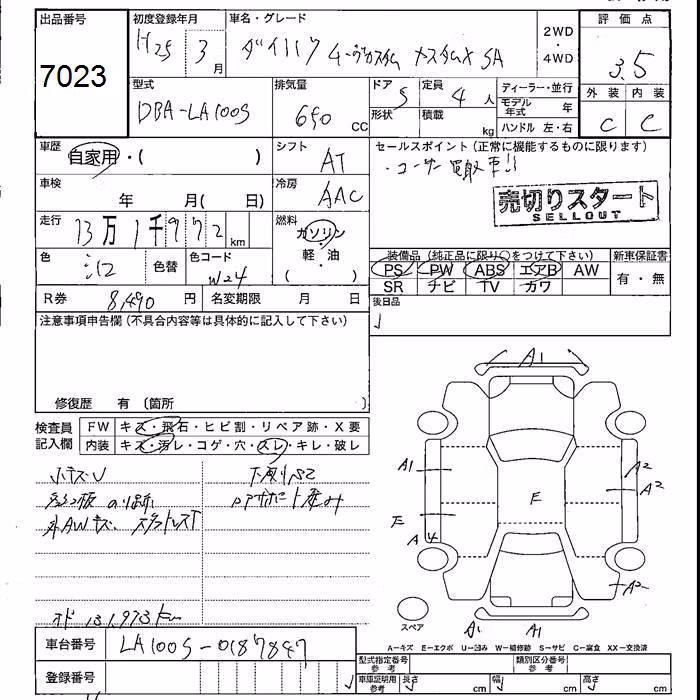 出品番号
7023
初度登録年月
H25 3月
車名・グレード
ダイハツ ムーヴカスタム SA
2WD・4WD
評価点
3.5
外装 内装
C C
型式
DBA-LA100S
排気量
650 CC
ドア 5
形状
定員 4人
積載 kg
ディーラー・並行
モデル年式 年
ハンドル 左・右
車歴
自家用・( )
シフト
AT
セールスポイント(正常に機能するものに限ります)
・ユーザー買取車!!
売切りスタート
SELLOUT
車検
年 月( 日)
冷房
AAC
走行
13万1千972km
燃料
ガソリン・軽油
( )
色
色替
色コード
W24
装備品(純正品に限り○をつけて下さい)
PS PW ABS エアB AW
SR ナビ TV カワ
新車保証書
有・無
R券 8,490円
名変期限 月 日
後日品
注意事項申告欄(不具合内容等は具体的に記入して下さい)
修復歴 有(箇所 )
検査員記入欄
FW キズ・飛石・ヒビ割・リペア跡・X要
内装 キズ・汚レ・コゲ・穴・スレ・キレ・破レ
小キズU
外AWキズ
131,973km
車台番号
LA100S-0187847
登録番号
A1
A1
A2
A2
F
E
A4
A2
A1
A1
スペア
A-キズ E-エクボ U-凹み W-補修跡 S-サビ C-腐食 XX-交換済
型式指定番号 参考
類別区分番号 参考
車庫証明用 参考
長さ cm 幅 cm 高さ cm